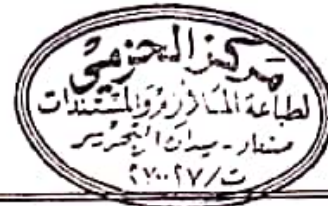 مركز الحزمي
لطباعة الملازم والمستندات
ذمار - ميدان التحرير
ت/٢٧٠٠٢٧